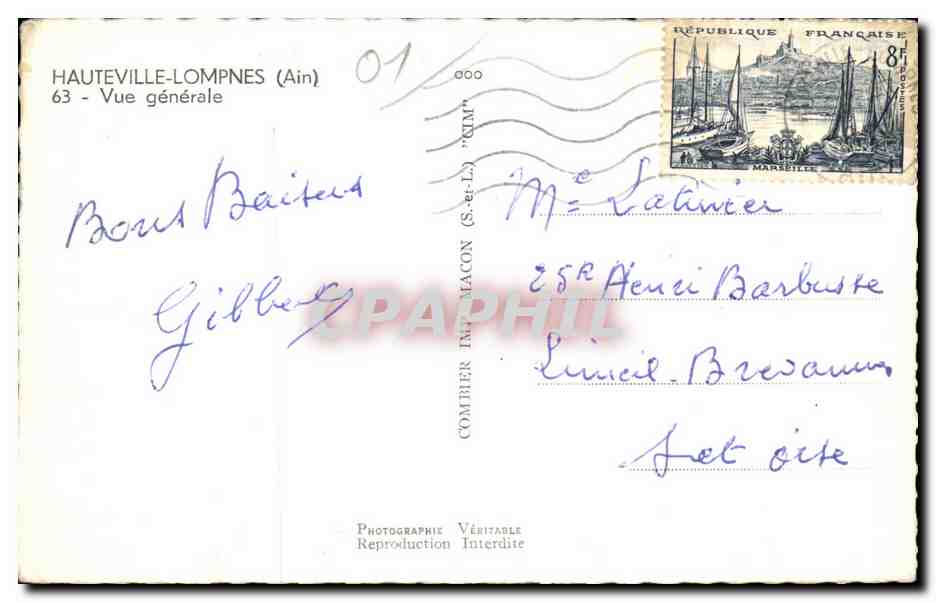 HAUTEVILLE-LOMPNES (Ain)
63 - Vue générale
01
000
RÉPUBLIQUE FRANÇAISE
8F
POSTES
MARSEILLE
Bons Baisers
Gilbert
COMBIER IMP. MACON (S.-et-L.) "CIM"
CPAPHIL
Me Latinier
25 R Henri Barbusse
Limeil-Brevannes
S et Oise
PHOTOGRAPHIE VÉRITABLE
Reproduction Interdite